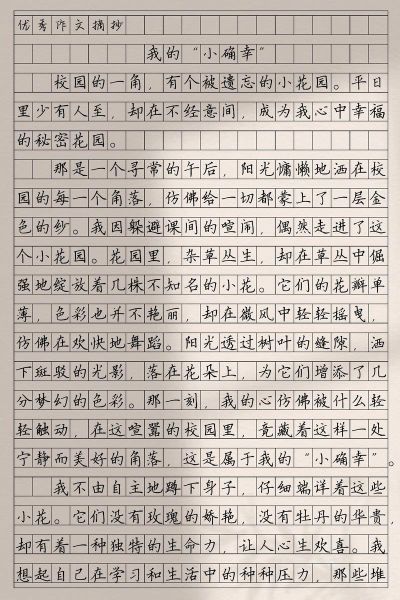 优秀作文摘抄
我的“小确幸”
校园的一角，有个被遗忘的小花园。平日
里少有人至，却在不经意间，成为我心中幸福
的秘密花园。
那是一个寻常的午后，阳光慵懒地洒在校
园的每一个角落，仿佛给一切都蒙上了一层金
色的纱。我因躲避课间的喧闹，偶然走进了这
个小花园。花园里，杂草丛生，却在草丛中倔
强地绽放着几株不知名的小花。它们的花瓣单
薄，色彩也并不艳丽，却在微风中轻轻摇曳，
仿佛在欢快地舞蹈。阳光透过树叶的缝隙，洒
下斑驳的光影，落在花朵上，为它们增添了几
分梦幻的色彩。那一刻，我的心仿佛被什么轻
轻触动，在这喧嚣的校园里，竟藏着这样一处
宁静而美好的角落，这是属于我的“小确幸”。
我不由自主地蹲下身子，仔细端详着这些
小花。它们没有玫瑰的娇艳，没有牡丹的华贵，
却有着一种独特的生命力，让人心生欢喜。我
想起自己在学习和生活中的种种压力，那些堆